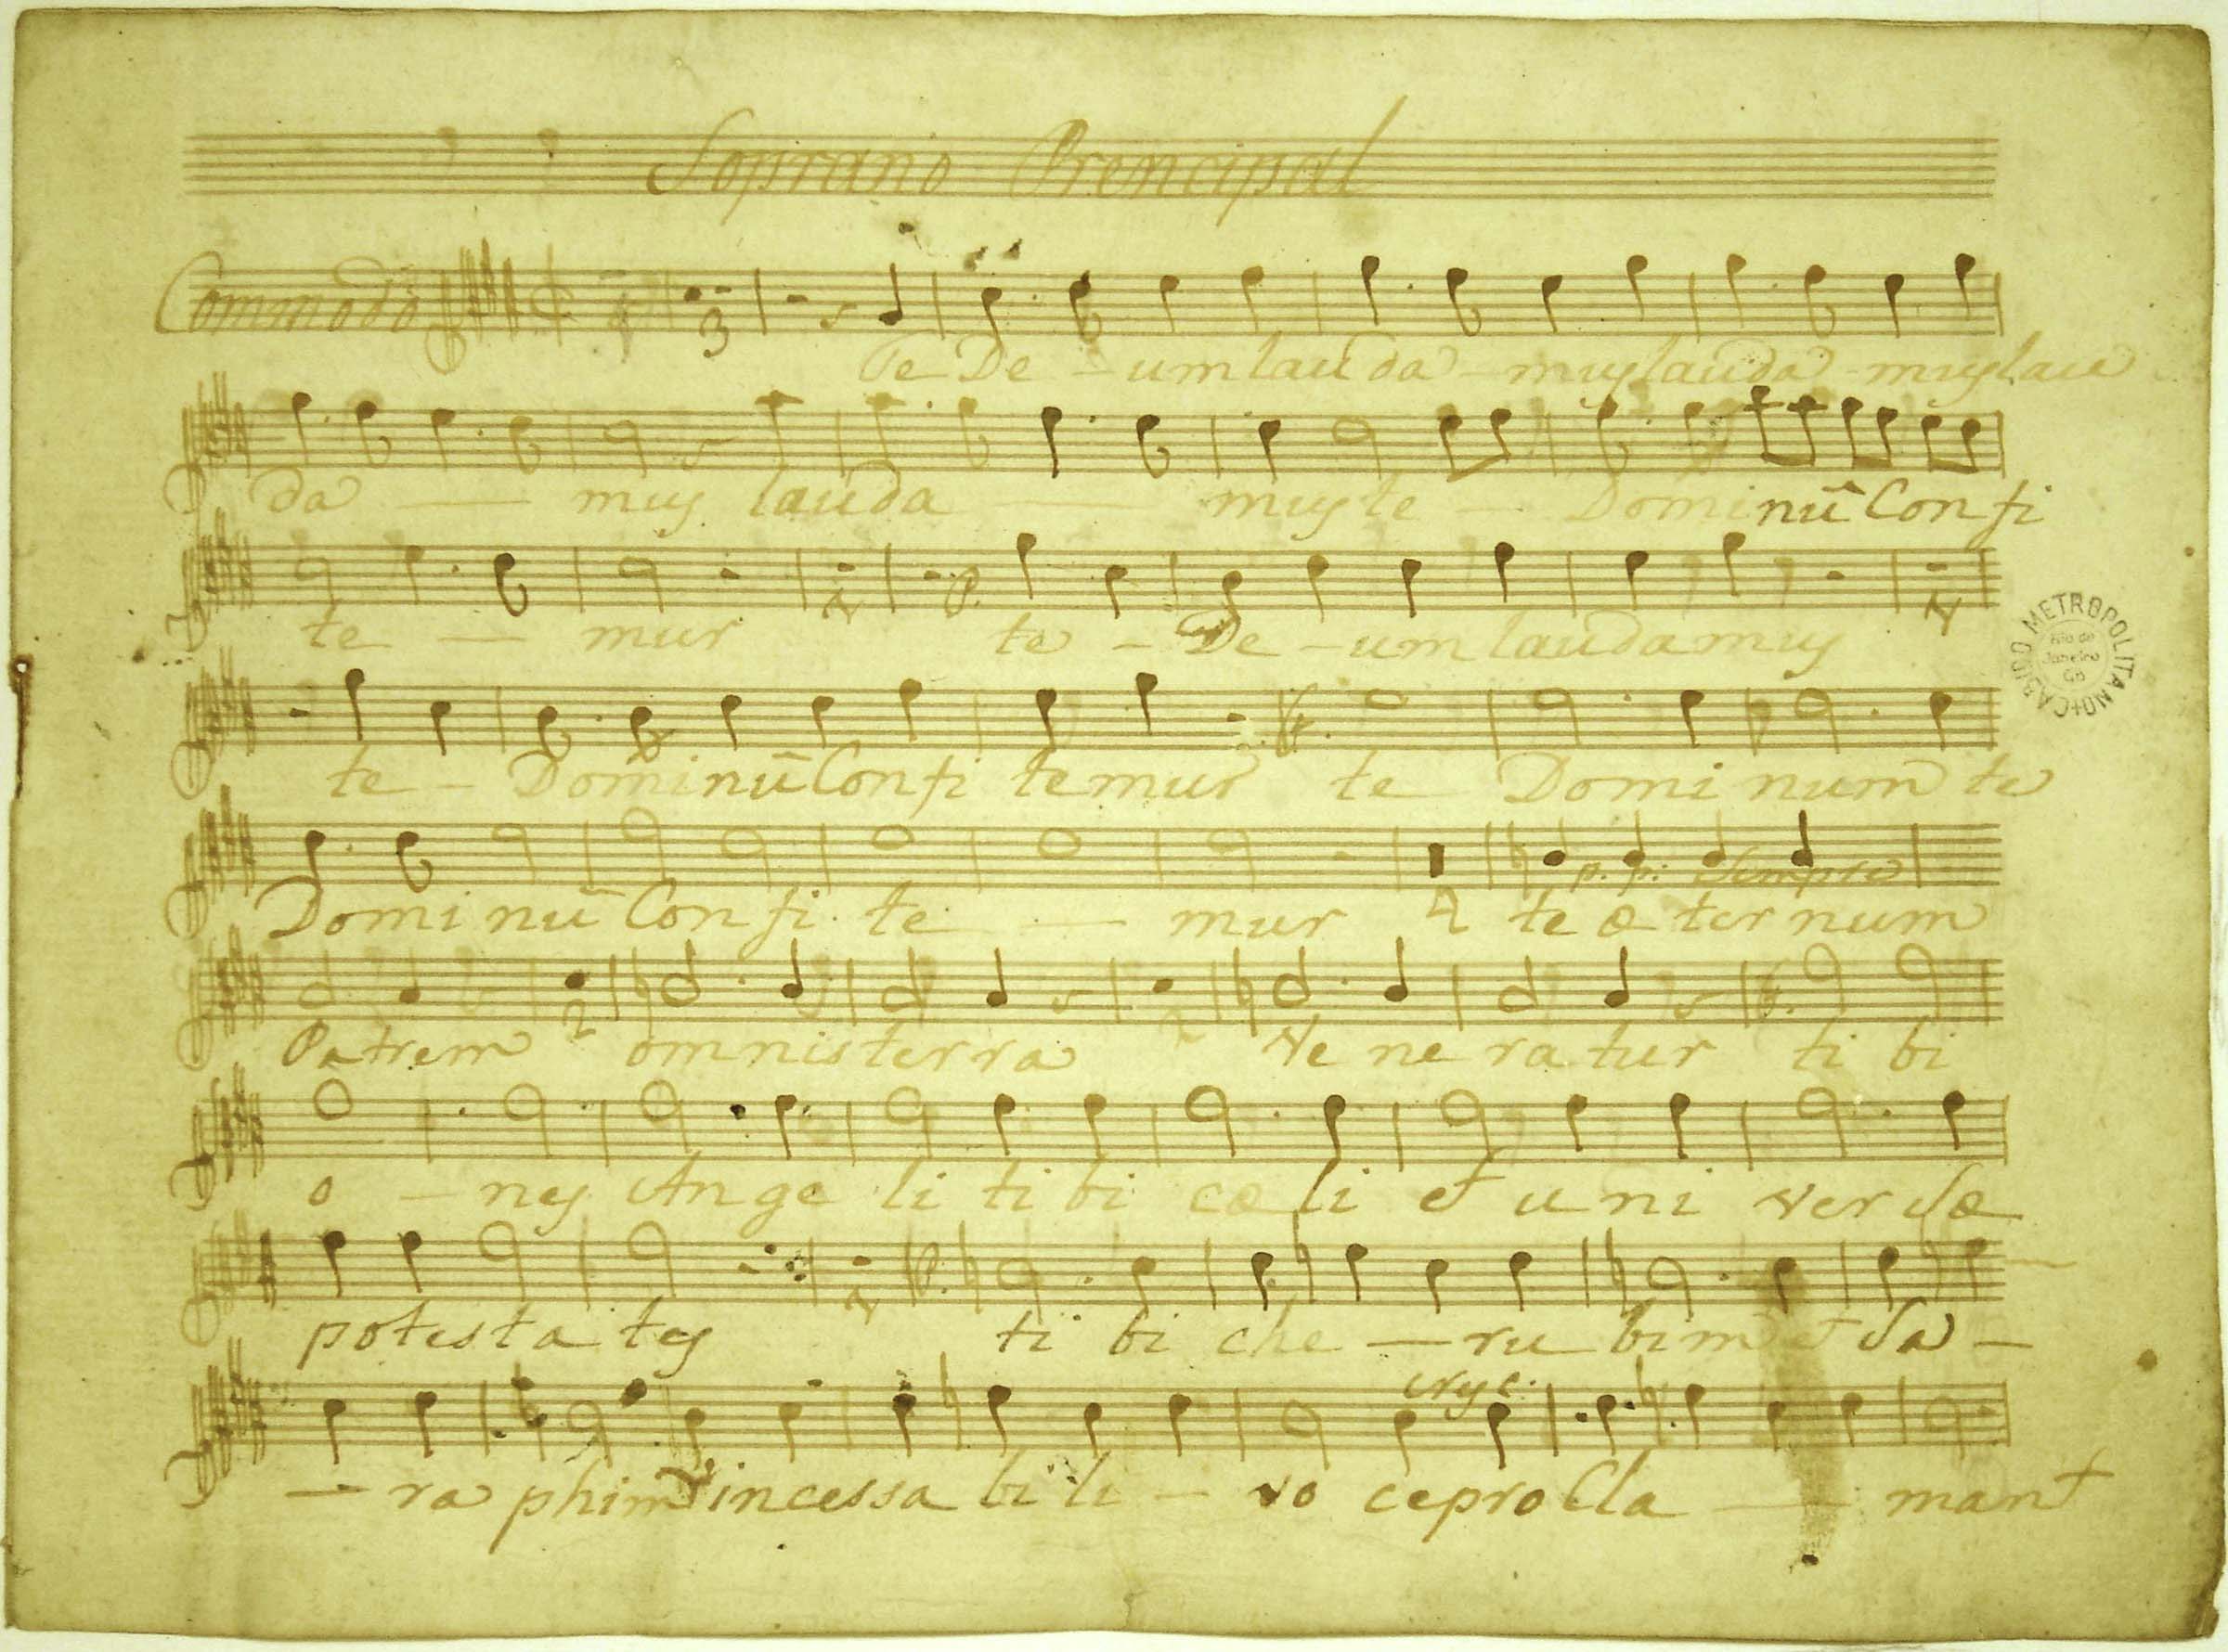 Soprano Prencipal
Commodo
3
Te De - um lau da - mus lauda - mus lau
da — mus lauda — mus te - Dominũ Confi
P.
te — mur te - De - um laudamus
F.
te - Dominũ Confi temur te Domi num te
p. p: Sempre
Domi nũ Con fi te — mur te æ ter num
2 2
Patrem omnis ter ra Ve ne ra tur ti bi
o - nes An ge li ti bi cæ li et u ni ver sæ
P.
potesta tes ti bi che — ru bim et Sa —
— ra phim incessa bi li - vo ce procla — mant
CABIDO METROPOLITANO
Rio de
Janeiro